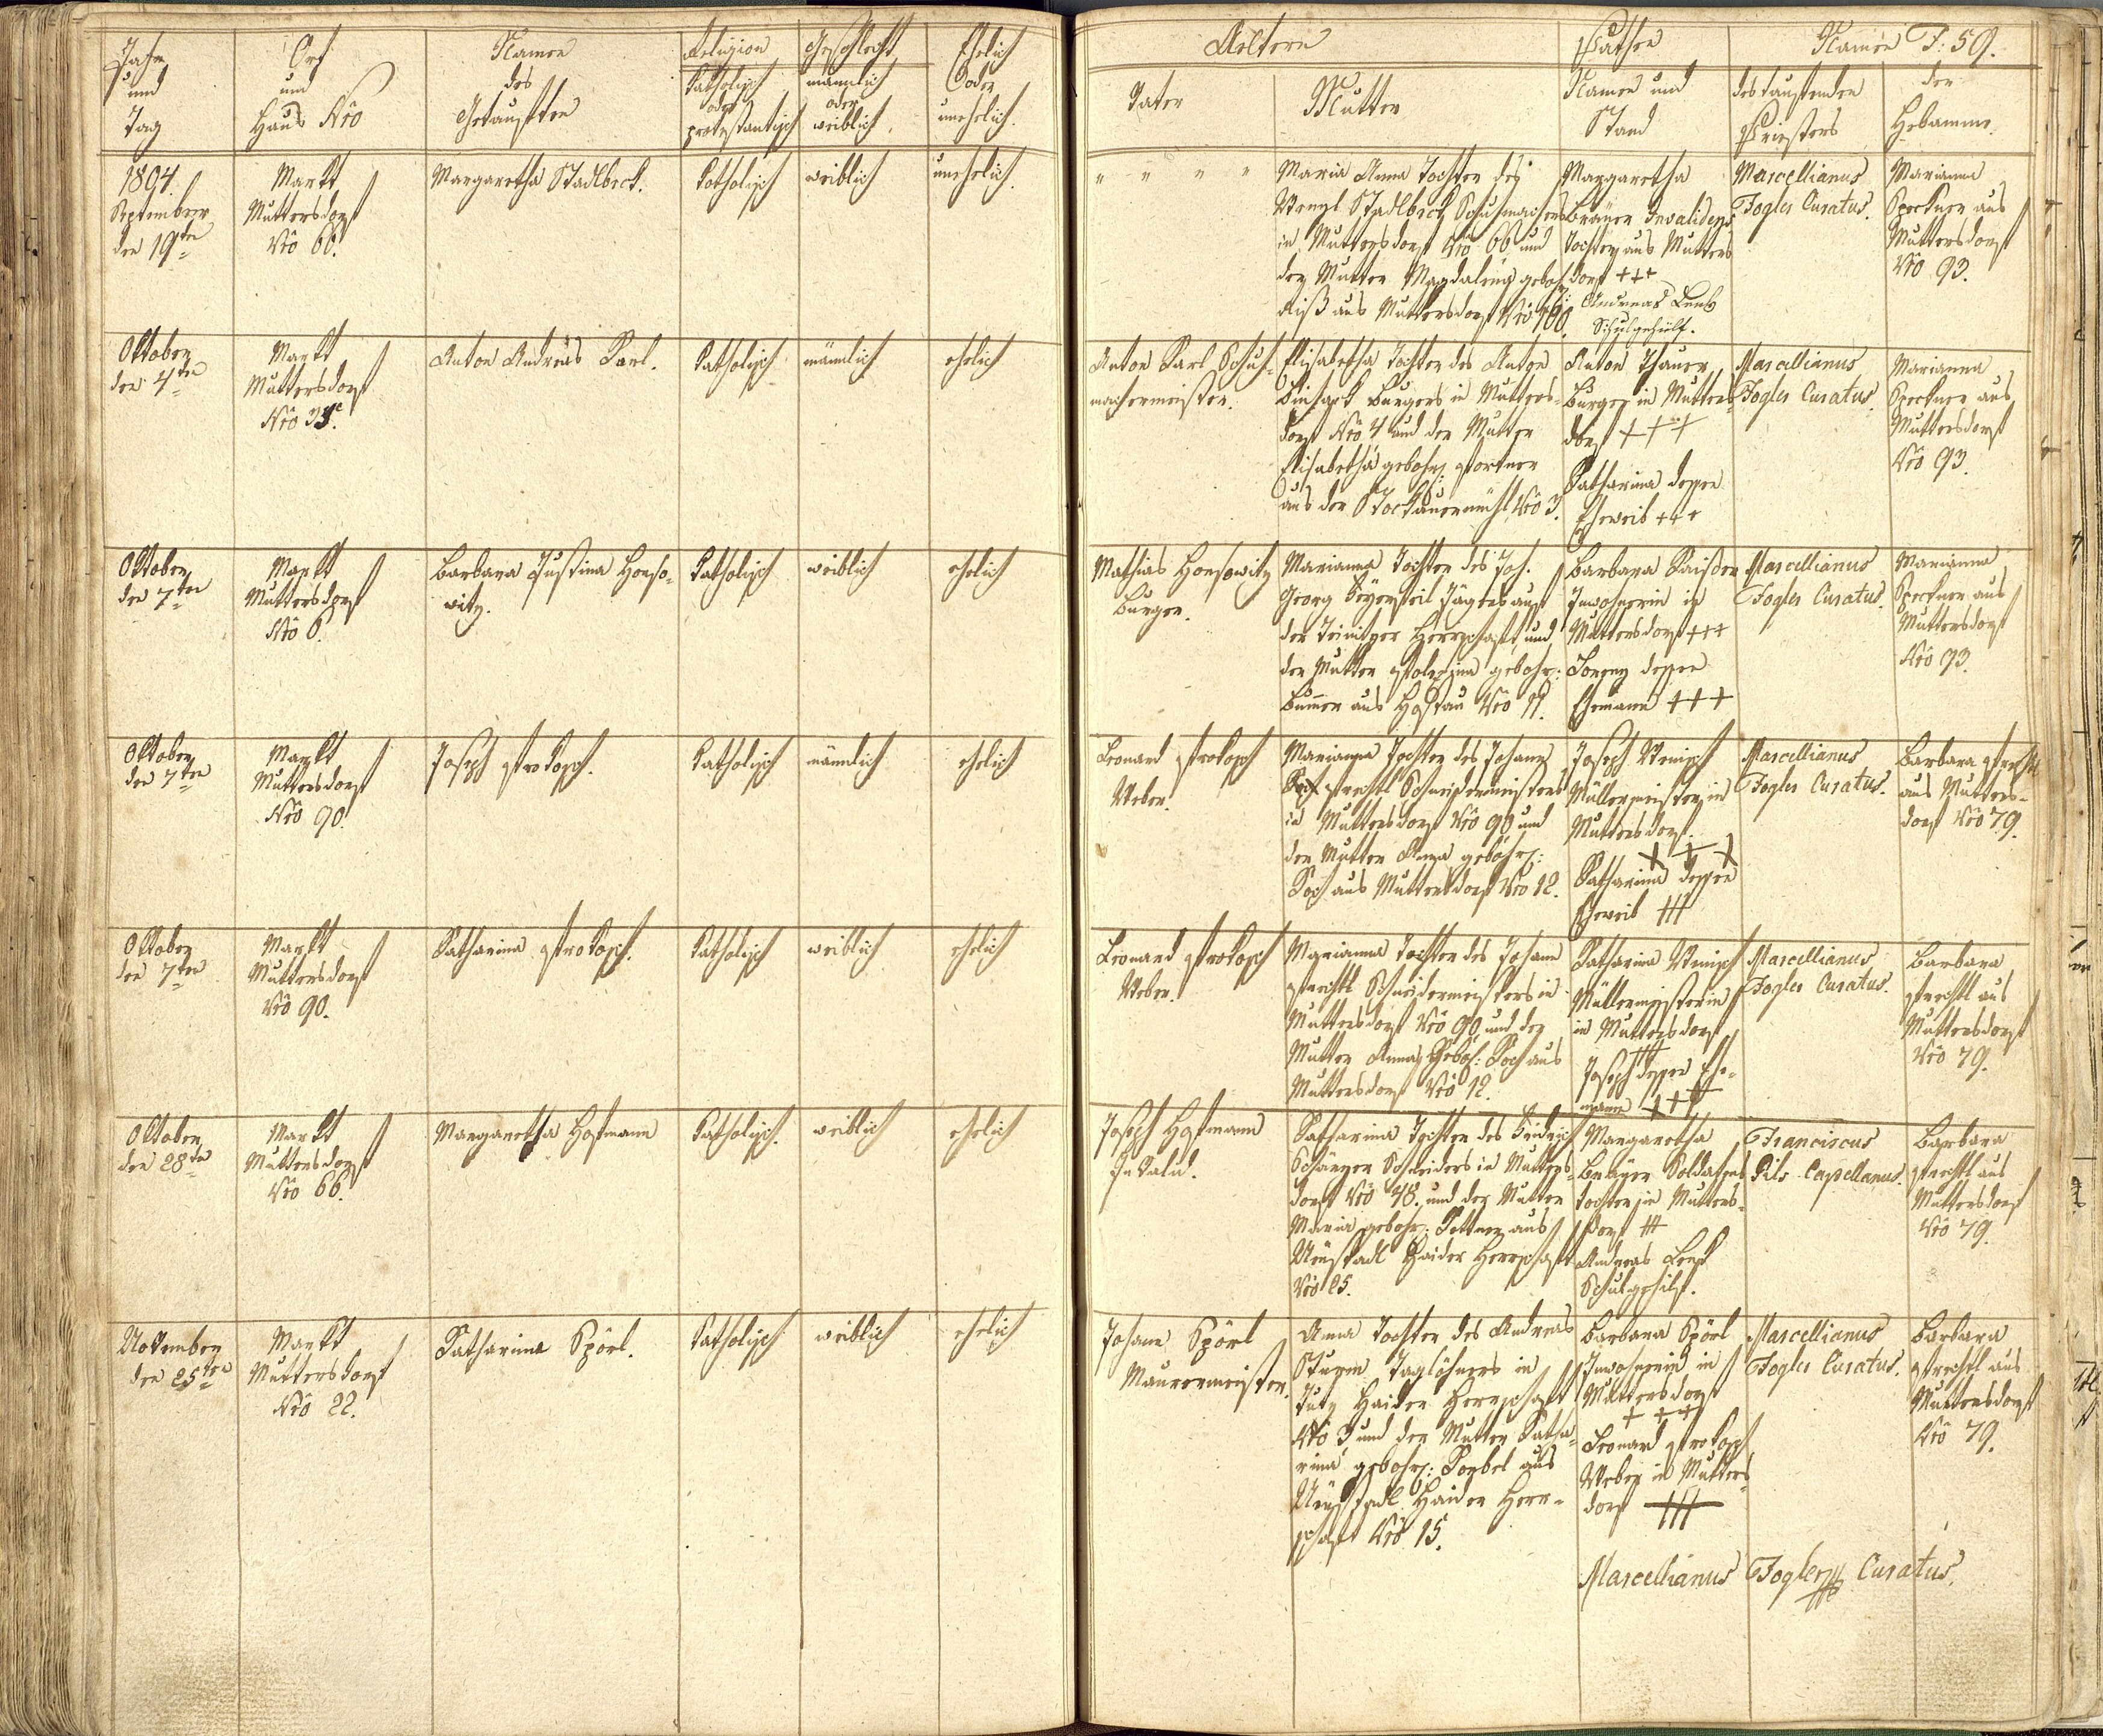 Jahr und Tag
Ort und Haus Nro
Namen des Getauften
Religion
Katholisch oder protestantisch
Geschlecht
männlich oder weiblich.
Ehelich oder unehelich.
Aeltern
Vater
Mutter
Pathen
Namen und Stand
Namen F: 59.
des taufenden Priesters
der Hebamme.
1804.
September
den 19ten
Markt
Muttersdorf
Nro 66.
Margaretha Stadlbeck.
Katholisch
weiblich
unehelich.
" " " "
Maria Anna Tochter des
Wenzl Stadlbeck Schuhmachers
in Muttersdorf Nro 66 und
der Mutter Magdalena gebohr:
aus Muttersdorf Nro
Margaretha
Bräuer Invalidens
Tochter aus Mutters
dorf +++
Andreas Lenk
Schulgehilf.
Marcellianus
Fogler Curatus.
Marianna
Speckner aus
Muttersdorf
Nro 93.
Oktober
den 4ten
Markt
Muttersdorf
Nro
Anton Andreas Karl.
Katholisch
männlich
ehelich
Anton Karl Schuh-
machermeister.
Elisabetha Tochter des Anton
Burgers in Mutters-
dorf Nro 4 und der Mutter
Elisabetha gebohr: Portner
aus der Stockauermühl Nro 3.
Anton Thauer
Burger in Mutters-
dorf +++
Katharina dessen
Eheweib +++
Marcellianus
Fogler Curatus.
Marianna
Speckner aus
Muttersdorf
Nro 93.
Oktober
den 7ten
Markt
Muttersdorf
Nro 6.
Barbara Justina Honso-
witz.
Katholisch
weiblich
ehelich
Mathias Honsowitz
Burger.
Marianna Tochter des Joh.
Georg Beyersteil Jägers aus
der Teinitzer Herrschaft, und
der Mutter gebohr:
aus Hostau Nro 11.
Barbara Kaißer
Inwohnerin in
Muttersdorf +++
Lorenz dessen
Ehemann +++
Marcellianus
Fogler Curatus.
Marianna
Speckner aus
Muttersdorf
Nro 93.
Oktober
den 7ten
Markt
Muttersdorf
Nro 90.
Joseph Prokosch.
Katholisch
männlich
ehelich
Leonard Prokosch
Weber.
Marianna Tochter des Johann
Prechtl Schneidermeisters
in Muttersdorf Nro 90 und
der Mutter Anna gebohr:
Koch aus Muttersdorf Nro 12.
Joseph Wenisch
Müllermeister in
Muttersdorf.
+ + +
Katharina dessen
Eheweib +++
Marcellianus
Fogler Curatus.
Barbara Prechtl
aus Mutters-
dorf Nro 79.
Oktober
den 7ten
Markt
Muttersdorf
Nro 90.
Katharina Prokosch.
Katholisch
weiblich
ehelich
Leonard Prokosch
Weber.
Marianna Tochter des Johann
Prechtl Schneidermeisters in
Muttersdorf Nro 90 und der
Mutter Anna Geboh: Koch aus
Muttersdorf Nro 12.
Katharina Wenisch
Müllermeisterin
in Muttersdorf
+++
Joseph dessen Ehe-
mann +++
Marcellianus
Fogler Curatus.
Barbara
Prechtl aus
Muttersdorf
Nro 79.
Oktober
den 28ten
Markt
Muttersdorf
Nro 66.
Margaretha Hofmann
Katholisch.
weiblich
ehelich
Joseph Hofmann
Invalid.
Katharina Tochter des Fridrich
Schneiders in Mutters-
dorf Nro 78. und der Mutter
Maria gebohr: aus
Neustadl Haider Herrschaft
Nro 25.
Margaretha
Bräuer Soldatens
Tochter in Mutters-
dorf ++
Andreas Lenk
Schulgehilf.
Franciscus
Pils Capellanus.
Barbara
Prechtl aus
Muttersdorf
Nro 79.
November
den 25ten
Markt
Muttersdorf
Nro 22.
Katharina Spörl.
Katholisch
weiblich
ehelich
Johann Spörl
Maurermeister.
Anna Tochter des Andreas
Sturm Taglöhners in
Haider Herrschaft
Nro 3 und der Mutter Katha-
rina gebohr: aus
Neustadl Haider Herr-
schaft Nro 15.
Barbara Spörl
Inwohnerin in
Muttersdorf
+ + +
Leonard Prokosch
Weber in Mutters
dorf +++
Marcellianus
Fogler Curatus.
Barbara
Prechtl aus
Muttersdorf
Nro 79.
Marcellianus Fogler Curatus.